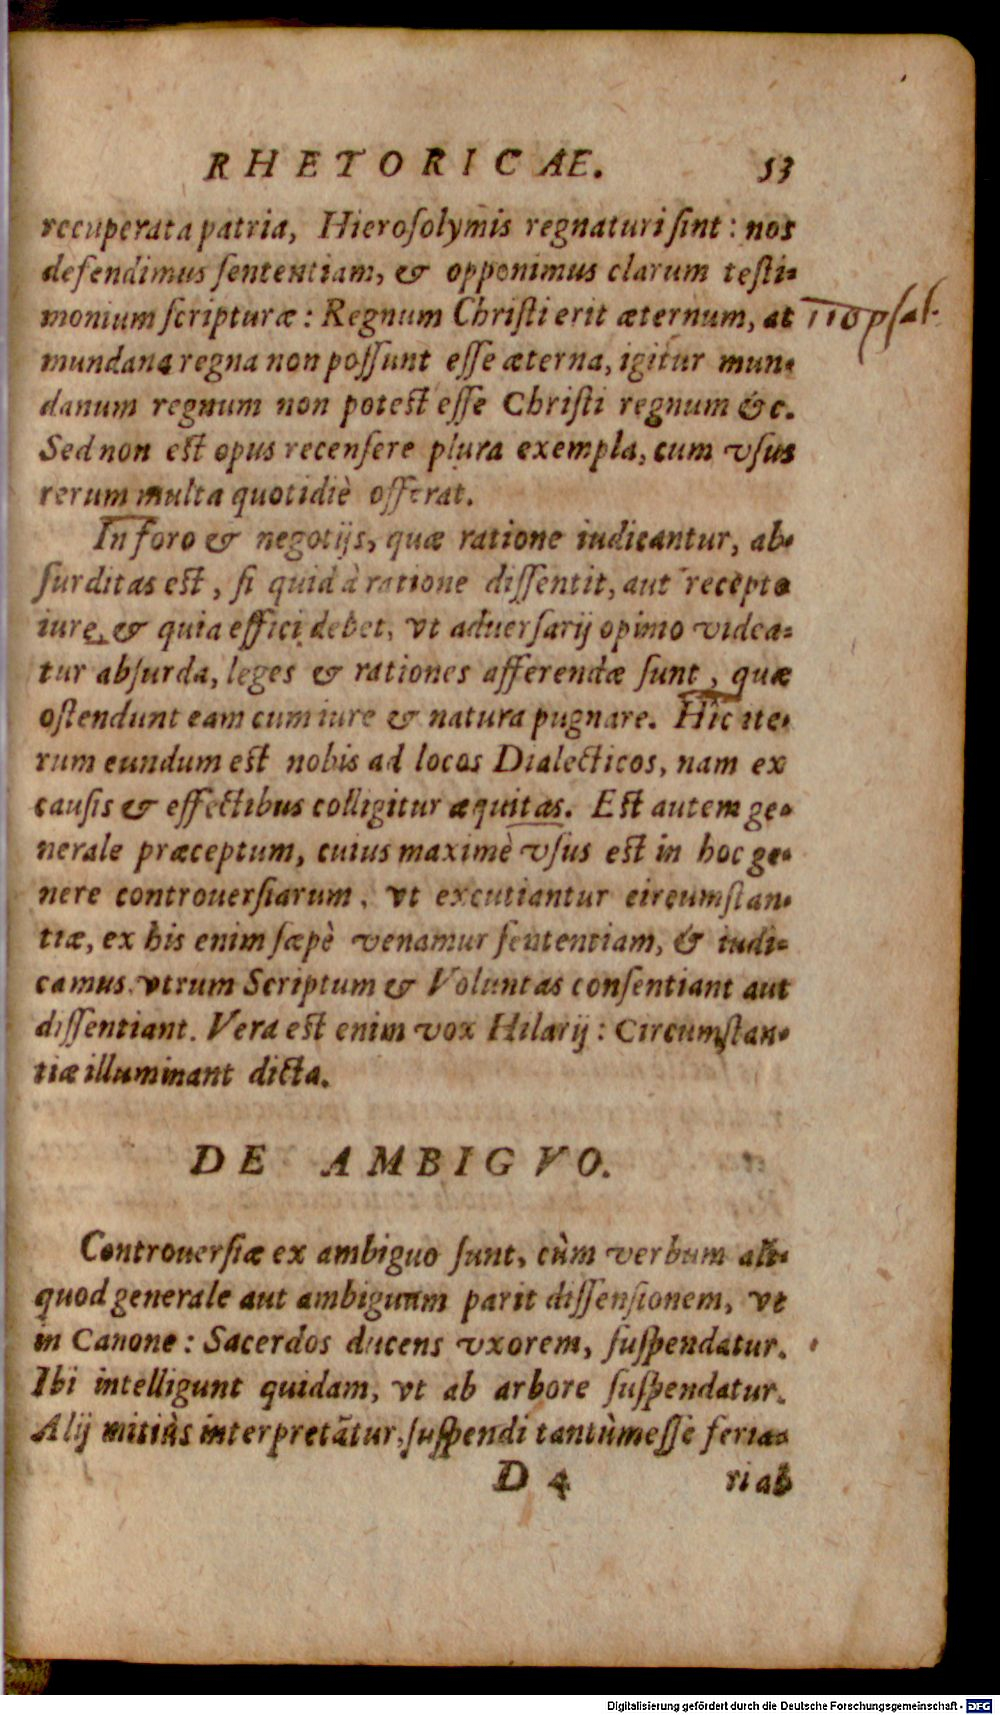 RHETORICAE. 53
recuperata patria, Hierosolymis regnaturi sint: nos
defendimus sententiam, & opponimus clarum testi-
monium scripturæ: Regnum Christi erit æternum, at 110 psal.
mundana regna non possunt esse æterna, igitur mun-
danum regnum non potest esse Christi regnum &c.
Sed non est opus recensere plura exempla, cum vsus
rerum multa quotidiè offerat.
In foro & negotijs, quæ ratione iudicantur, ab-
surditas est, si quid à ratione dissentit, aut recepto
iure, & quia effici debet, vt aduersarij opinio videa-
tur absurda, leges & rationes afferendæ sunt, quæ
ostendunt eam cum iure & natura pugnare. Hic ite-
rum eundum est nobis ad locos Dialecticos, nam ex
causis & effectibus colligitur æquitas. Est autem ge-
nerale præceptum, cuius maximè vsus est in hoc ge-
nere controuersiarum, vt excutiantur circumstan-
tiæ, ex his enim sæpè venamur sententiam, & iudi-
camus, vtrum Scriptum & Voluntas consentiant aut
dissentiant. Vera est enim vox Hilarij: Circumstan-
tiæ illuminant dicta.
DE AMBIGVO.
Controuersiæ ex ambiguo sunt, cùm verbum ali-
quod generale aut ambiguum parit dissensionem, vt
in Canone: Sacerdos ducens vxorem, suspendatur.
Ibi intelligunt quidam, vt ab arbore suspendatur.
Alij mitiùs interpretātur, suspendi tantùm esse feria-
D 4 ri ab
Digitalisierung gefördert durch die Deutsche Forschungsgemeinschaft - DFG